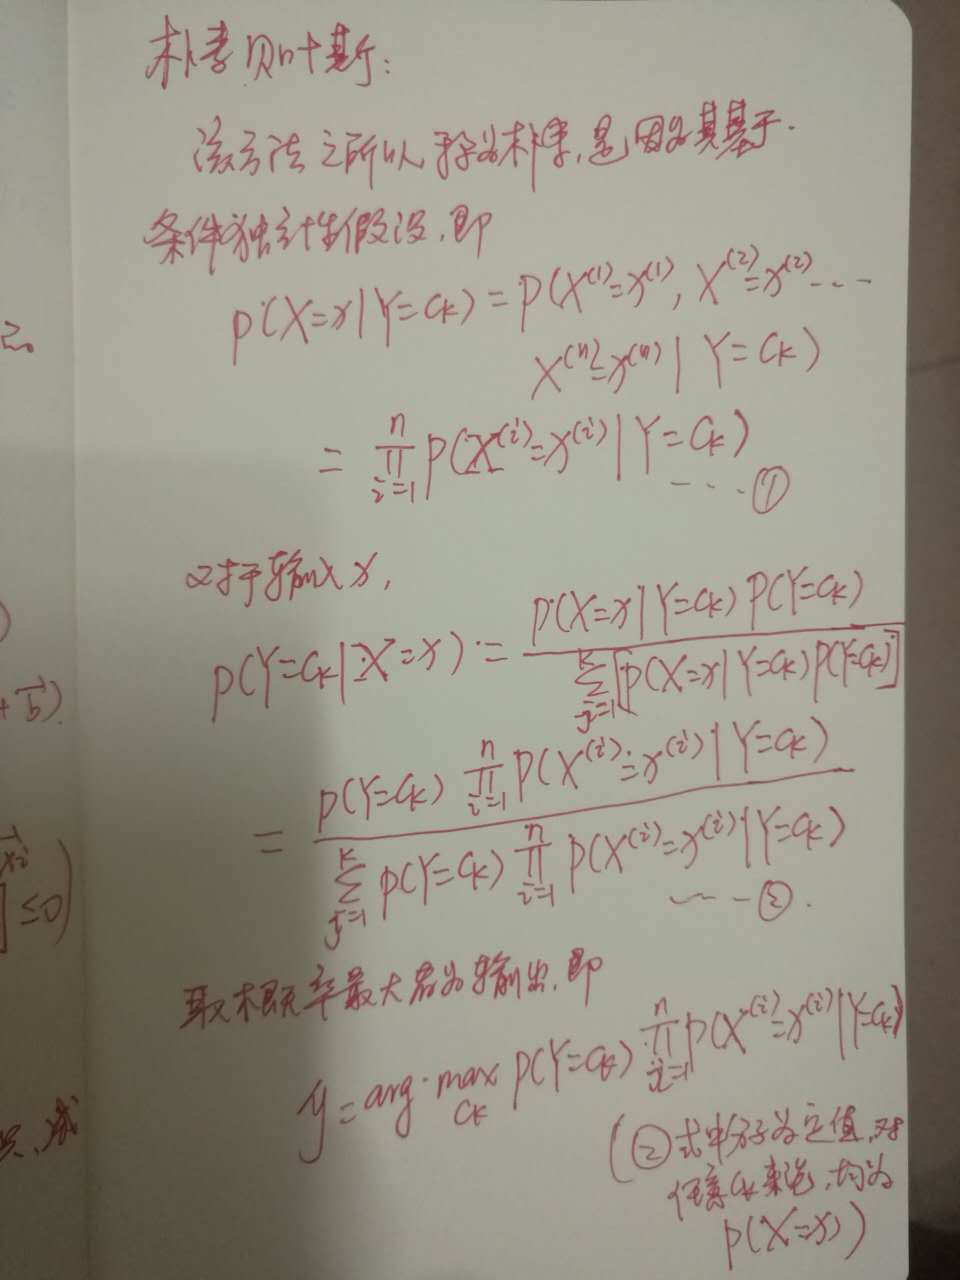 朴素贝叶斯:
该方法之所以称为朴素,是因为其基于
条件独立性假设,即
P(X=x|Y=Ck)=P(X^(1)=x^(1), X^(2)=x^(2)---
X^(n)=x^(n)|Y=Ck)
= ∏_{i=1}^{n} P(X^(i)=x^(i)|Y=Ck)
---①
对于输入x,
P(Y=Ck|X=x) = P(X=x|Y=Ck)P(Y=Ck) / ∑_{j=1}^{K}[P(X=x|Y=Ck)P(Y=Ck)]
= P(Y=Ck) ∏_{i=1}^{n} P(X^(i)=x^(i)|Y=Ck) / ∑_{j=1}^{K} P(Y=Ck) ∏_{i=1}^{n} P(X^(i)=x^(i)|Y=Ck)
---②.
取概率最大者为输出,即
y=arg max_{Ck} P(Y=Ck) ∏_{i=1}^{n} P(X^(i)=x^(i)|Y=Ck)
(②式中分子为定值,对
任意Ck来说,均为
P(X=x))
+b⃗)
≤0)